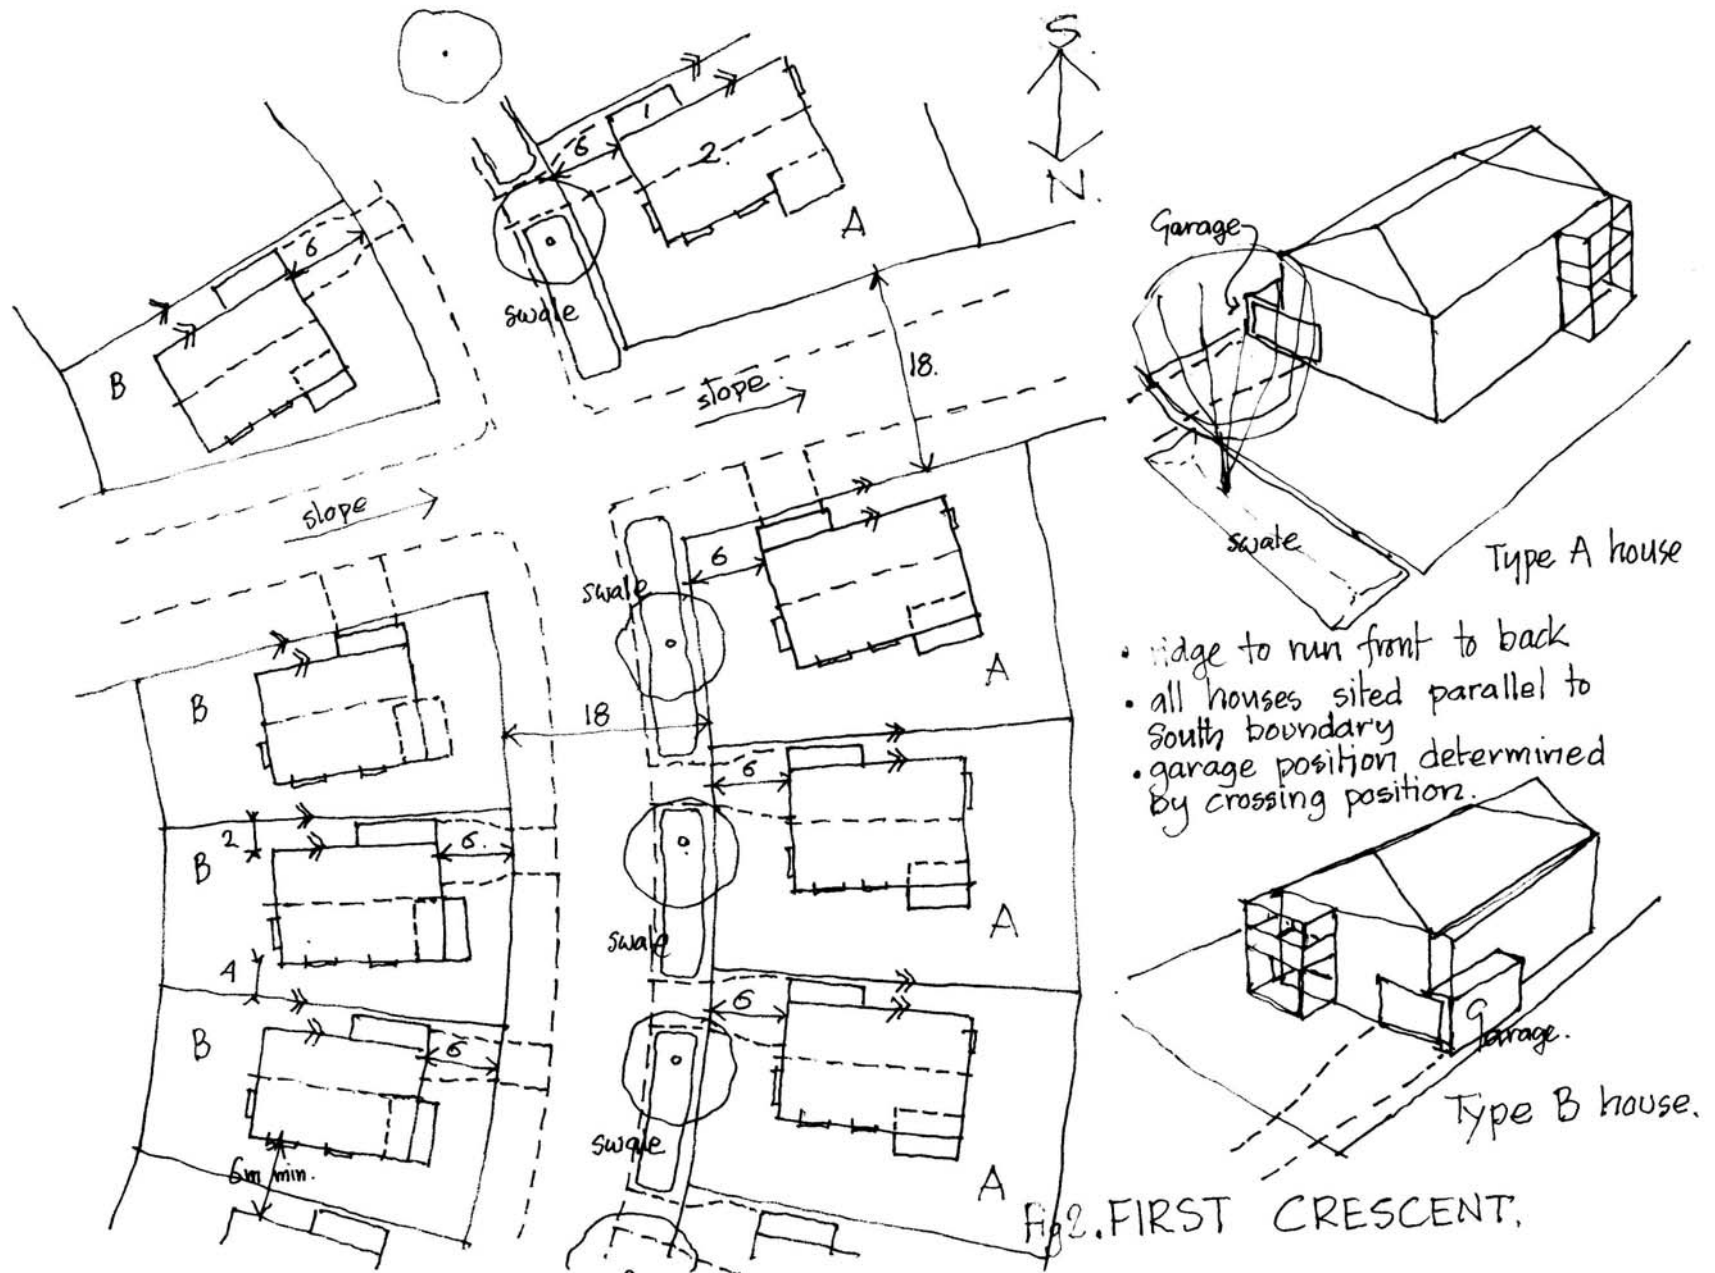 S.
N.
1
6
2.
A
6
B
swale
18.
slope
slope
Garage
swale
Type A house
6
swale
A
B
18
• ridge to run front to back
• all houses sited parallel to
South boundary
• garage position determined
by crossing position.
6
2
B
6.
swale
A
4
6
B
6
swale
A
6m min.
Garage.
Type B house.
Fig 2. FIRST CRESCENT.